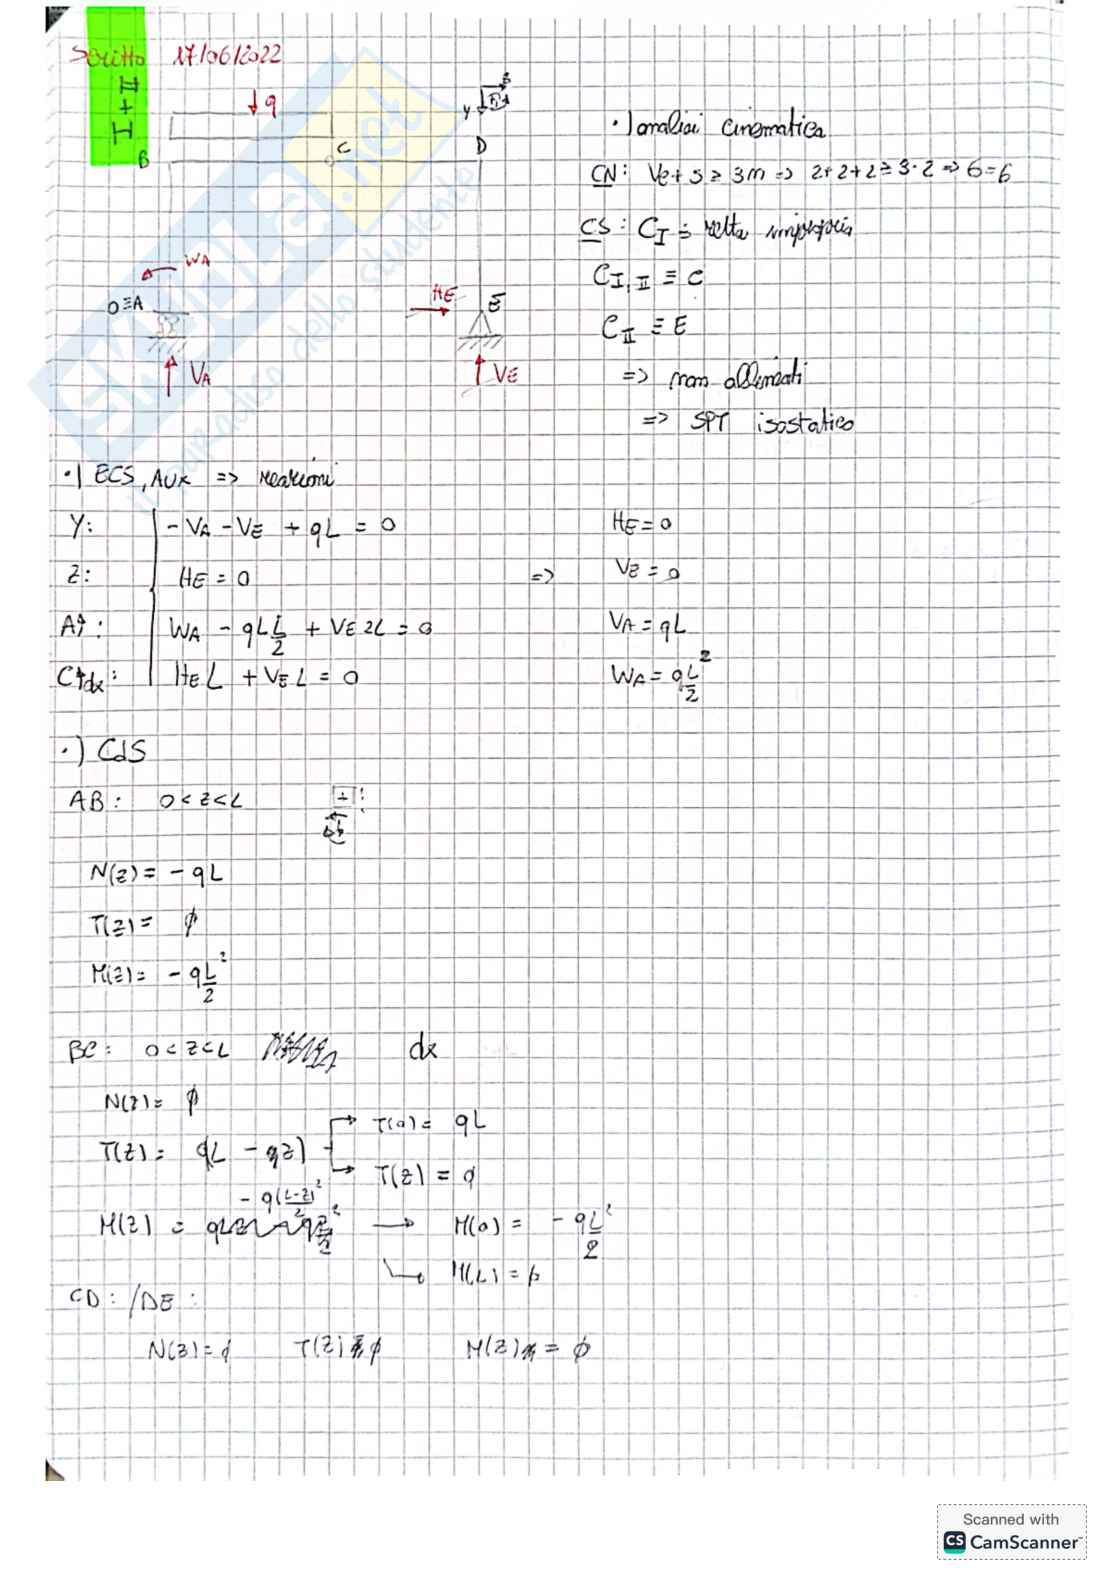 Scritto 17/06/2022
II + I
q
B
C
D
Y
WA
O≡A
VA
HE
E
VE
·) analisi cinematica
CN: Ve + s ≥ 3m => 2+2+2 ≥ 3·2 => 6=6
CS: CI ≡ retta impropria
CI,II ≡ C
CII ≡ E
=> non allineati
=> SPT isostatico
·) ECS, AUX => reazioni
Y: - VA - VE + qL = 0
Z: HE = 0
A↑: WA - qL L/2 + VE 2L = 0
C↑dx: HE L + VE L = 0
=>
HE = 0
VE = 0
VA = qL
WA = qL²/2
·) CdS
AB: 0 < z < L
N(z) = - qL
T(z) = ϕ
M(z) = - qL²/2
BC: 0 < z < L dx
N(z) = ϕ
T(z) = qL - qz
T(0) = qL
T(z) = ϕ
M(z) = - q(L-z)²/2
M(0) = - qL²/2
M(L) = ϕ
CD: /DE:
N(z) = ϕ T(z) = ϕ M(z) = ϕ
SKUOLA.net
il paradiso dello studente
Scanned with
CS CamScanner